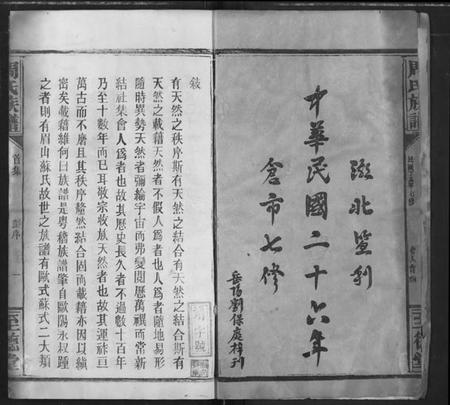 周氏族譜
中華民國二十六年
鄂北監利
倉市七修
岳陽劉保慶梓刊
至德堂
敍
有天然之秩序斯有天然之結合有天然之結合斯有
天然之載籍天然者不假人爲者也人爲者隨地易形
隨時異勢天然者彌綸宇宙而弗變閱歷萬禩而常新
結社集會人爲者也故其歷史長久者不過數十百年
乃至十數年而已敬宗收族天然者也故其運祚亘
萬古而不磨且其秩序釐然結合固而載籍亦因以縝
密矣載籍維何曰族譜是粵稽族譜肇自歐陽永叔踵
之者則有眉山蘇氏故世之族譜有歐式蘇式二大類
周氏族譜
首集
敍序
一
至德堂